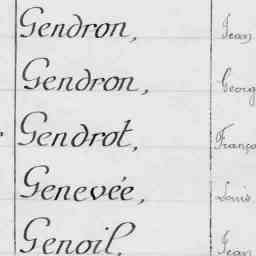 Gendron, Jean
Gendron, Georg
Gendrot, Franço
Genevée, Louis
Genoil, Jean